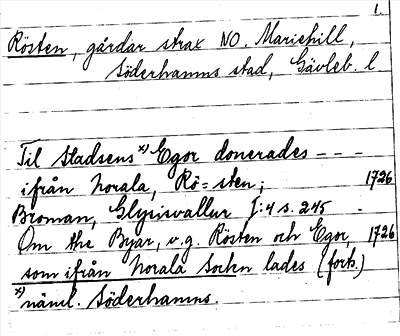 1.
Rösten, gårdar strax NO. Mariehill,
Söderhamns stad, Gävleb. l.
Til Stadsens x) Egor donerades - - -
ifrån Norala, Rö=sten; 1726
Broman, Glysisvallur I:4 s. 245 -
Om the Byar, v.g. Rösten och Egor, 1726
som ifrån Norala Sockn lades (forts.)
x) näml. Söderhamns.